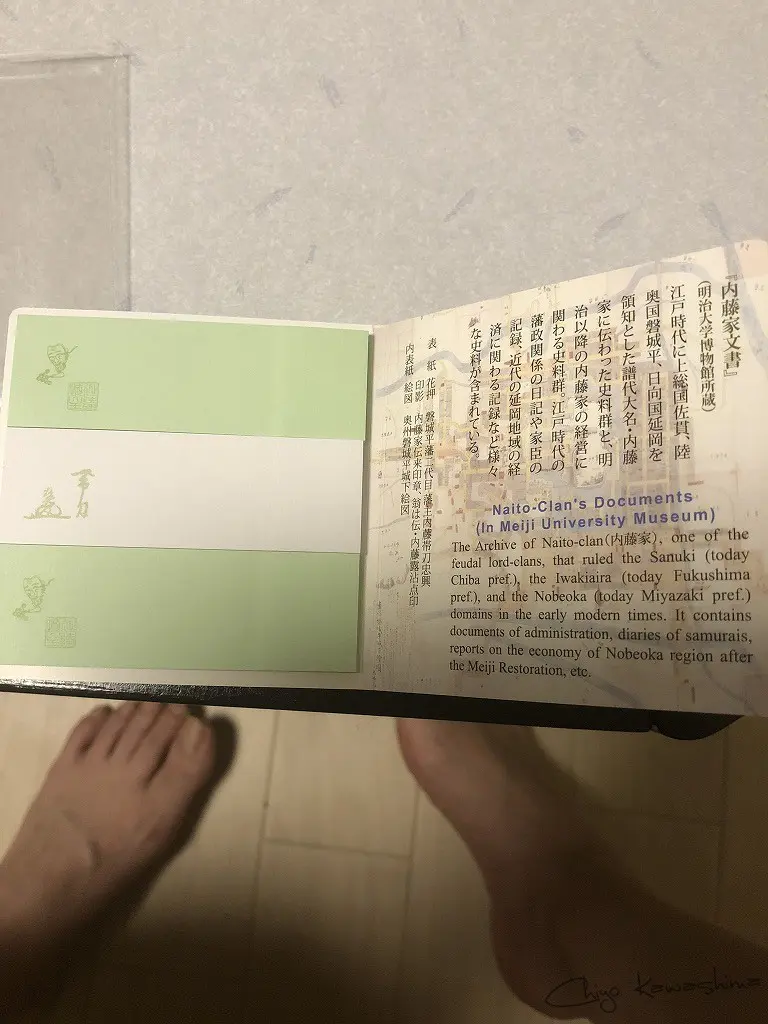 『内藤家文書』
(明治大学博物館所蔵)
江戸時代に上総国佐貫、陸
奥国磐城平、日向国延岡を
領知とした譜代大名・内藤
家に伝わった史料群と、明
治以降の内藤家の経営に
関わる史料群。江戸時代の
藩政関係の日記や家臣の
記録、近代の延岡地域の経
済に関わる記録など様々
な史料が含まれている。
表 紙 花押 磐城平藩二代目 藩主内藤帯刀忠興
印影 内藤家伝来印章 翁は伝・内藤露沾点印
内表紙 絵図 奥州磐城平城下絵図
Naito-Clan's Documents
(In Meiji University Museum)
The Archive of Naito-clan(内藤家), one of the
feudal lord-clans, that ruled the Sanuki (today
Chiba pref.), the Iwakiaira (today Fukushima
pref.), and the Nobeoka (today Miyazaki pref.)
domains in the early modern times. It contains
documents of administration, diaries of samurais,
reports on the economy of Nobeoka region after
the Meiji Restoration, etc.
Chiyo Kawashima